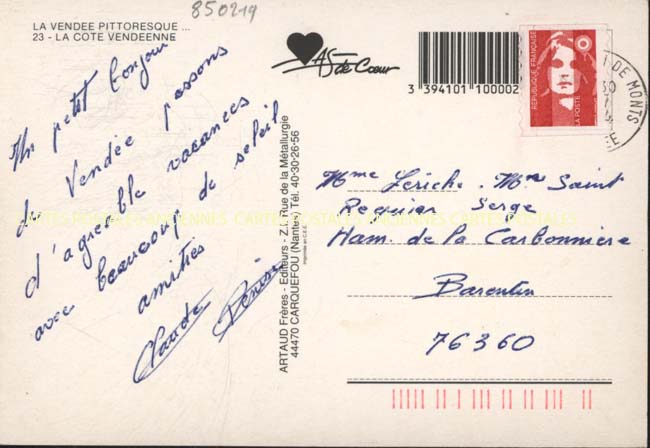 850219
LA VENDEE PITTORESQUE ...
23 - LA COTE VENDEENNE
Un petit bonjour
de Vendée passons
d'agréable vacances
avec beaucoup de soleil
amitiés
Claude Denise
ARTAUD Frères - Editeurs - Z.I. Rue de la Métallurgie
44470 CARQUEFOU (Nantes) Tél. 40-30-26-56
Imprimé en C.E.E.
As de Cœur
3 394101 100002
REPUBLIQUE FRANÇAISE
LA POSTE
T DE MONTS
30
Mme Leriche. Mme Saint
Requier Serge
Ham. de la Carbonnière
Barentin
76360
CARTES POSTALES ANCIENNES CARTES POSTALES ANCIENNES CARTES POSTALES